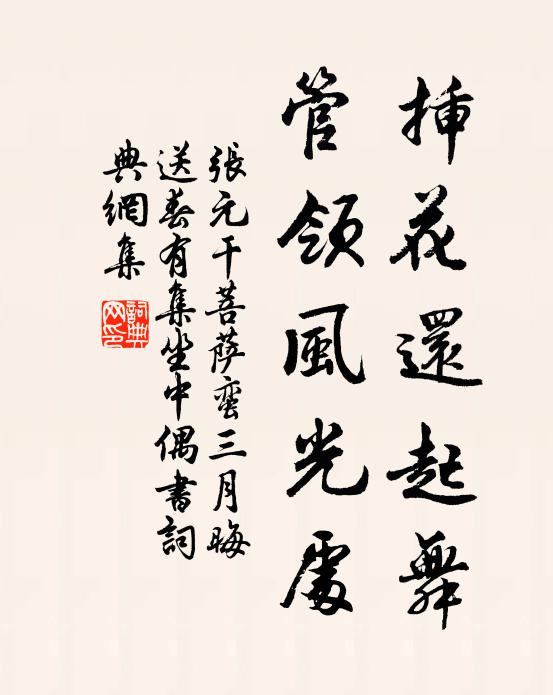 插花還起舞
管領風光處
張元干菩薩蠻三月晦
送春有集坐中偶書詞
典網集
詞典网印